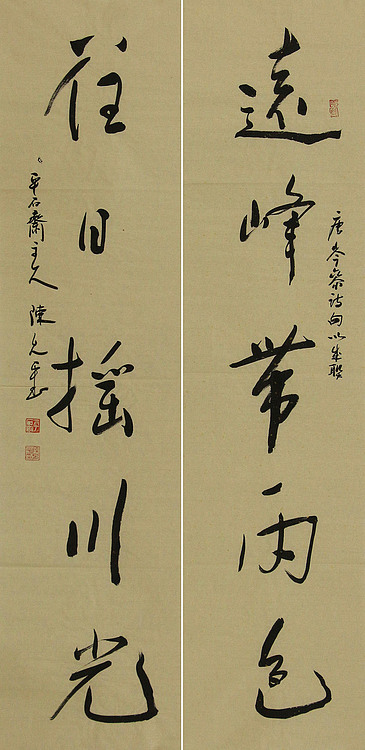 唐岑參詩句以成聯
遠峰帶雨色
落日搖川光
平石齋主人 陳